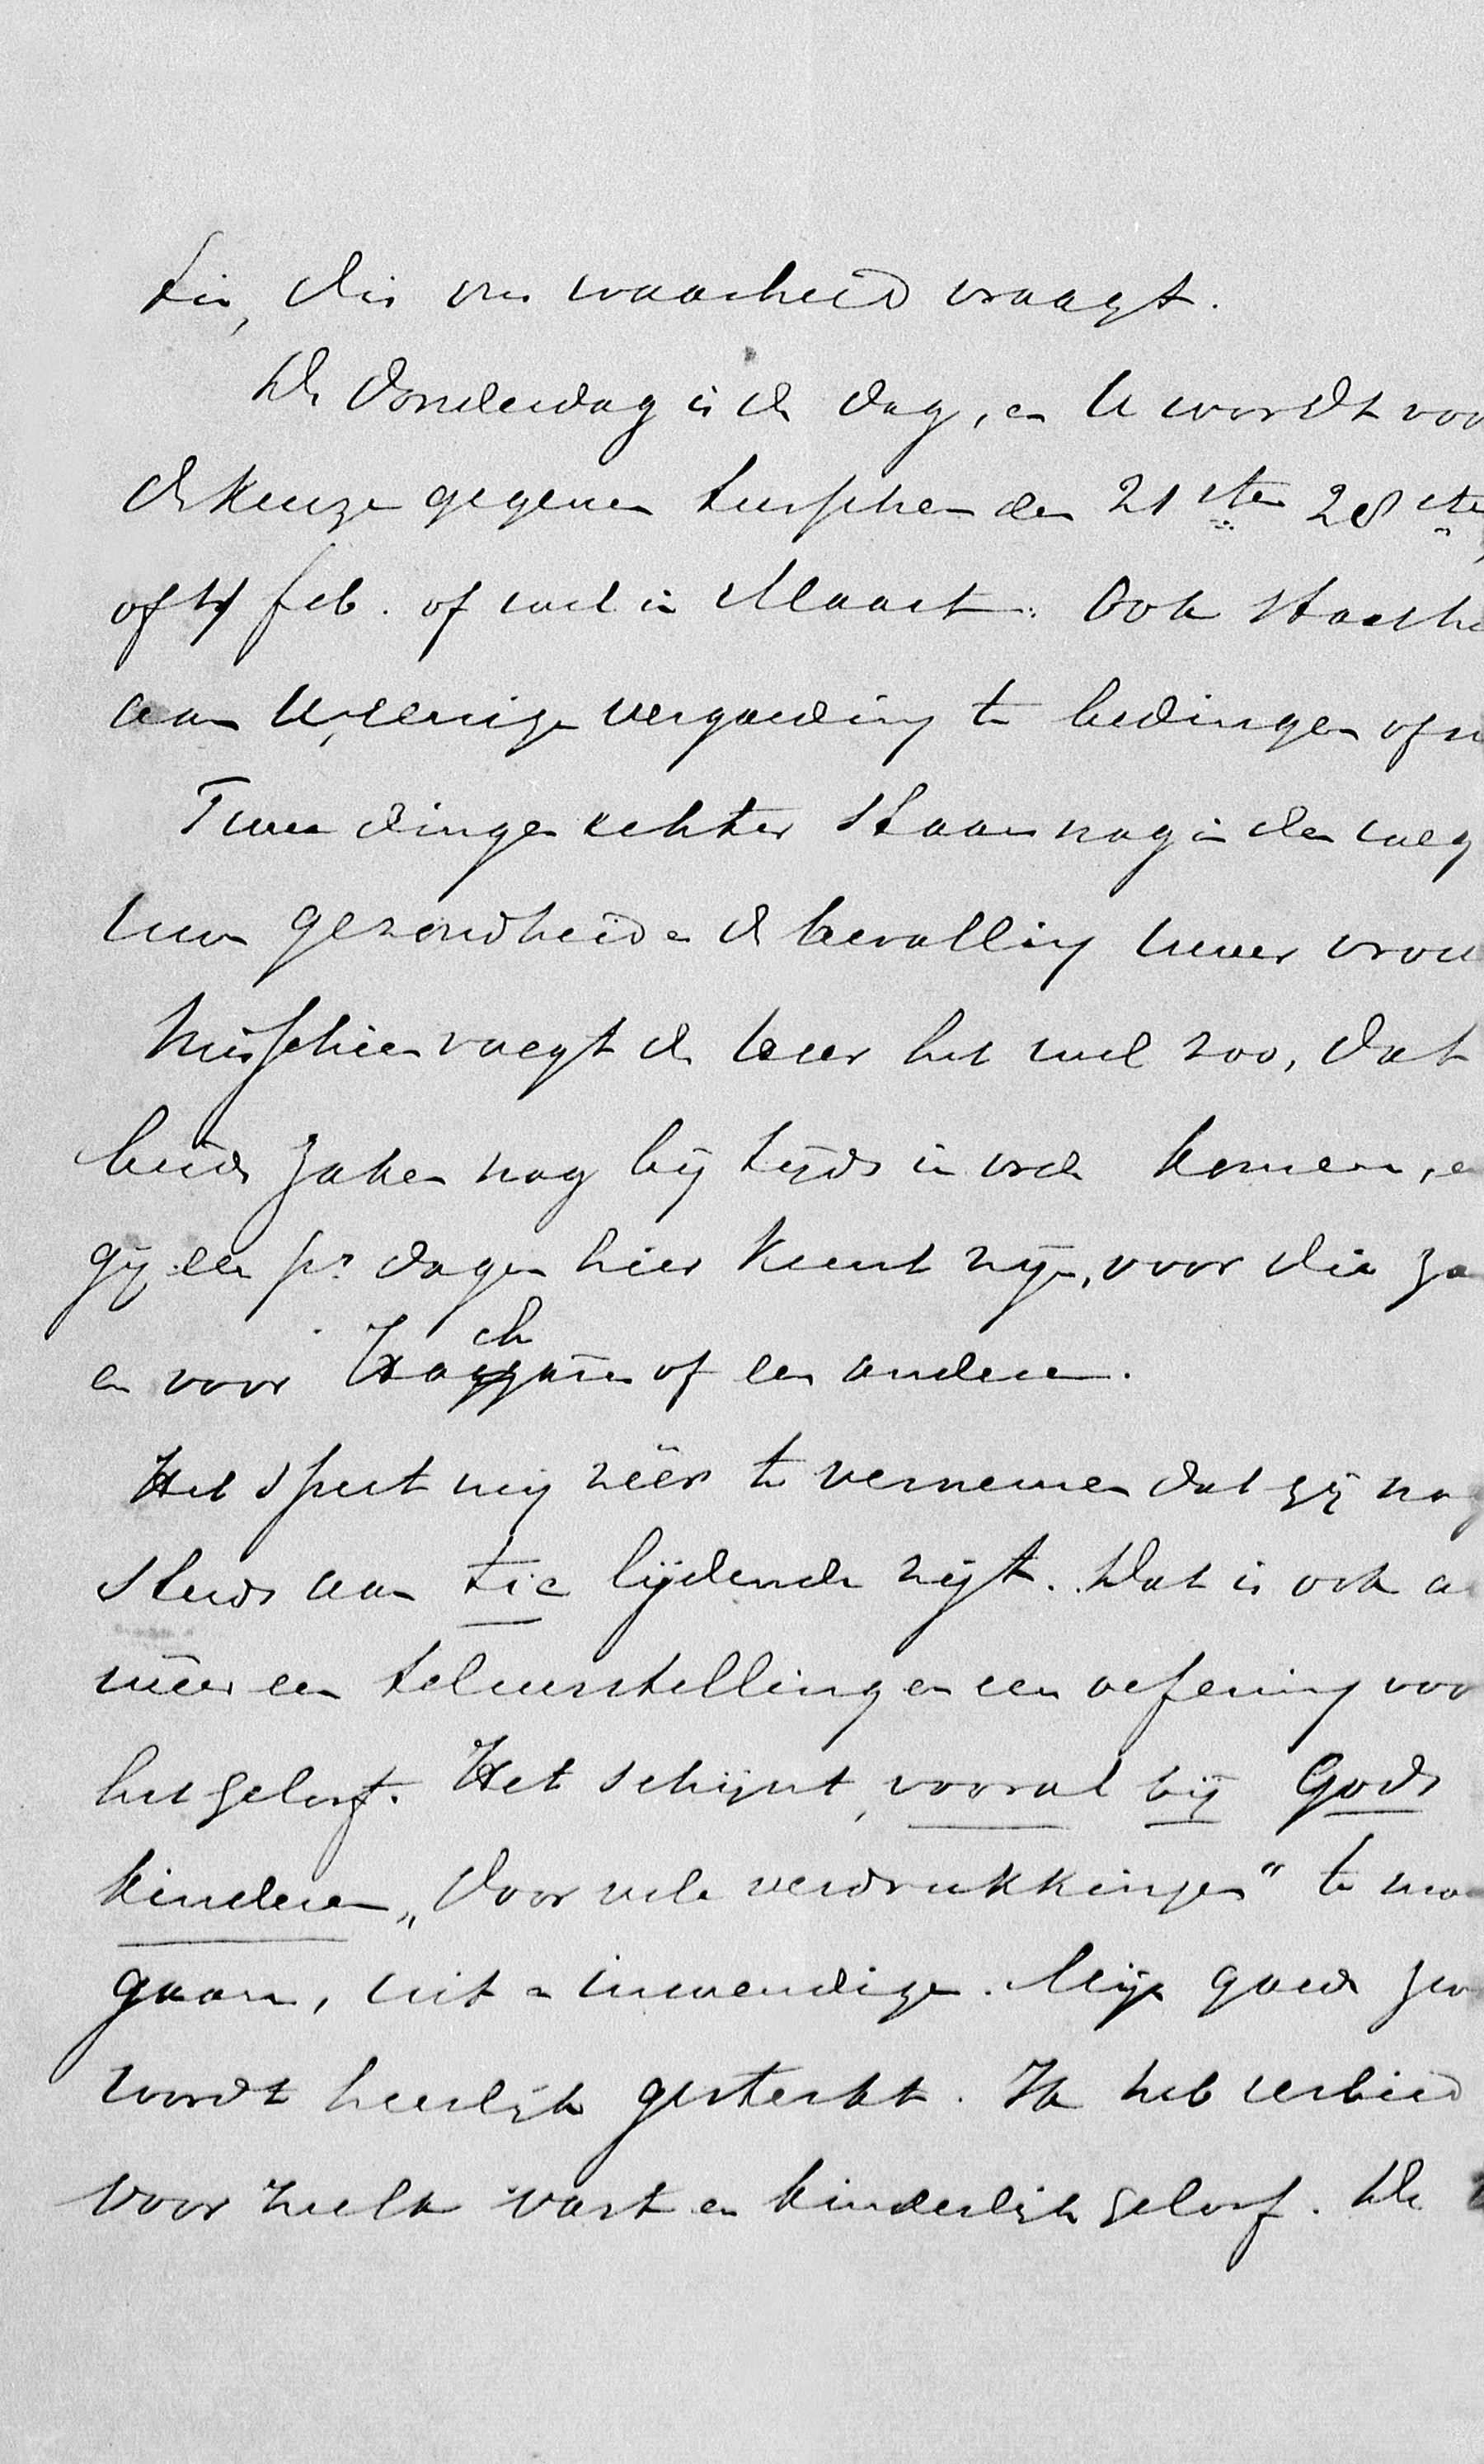 tie, die om waarheid vraagt.
De Donderdag is de dag, en U wordt voor
de keuze gegeven tusschen den 21sten 28sten
of 4 feb. of wel in Maart. Ook staat he
aan U, eenige vergoeding te bedingen of n
Twee dingen echter staan nog in den weg
uwe gezondheid en de bevalling uwer vrou
Misschien voegt de Heer het wel zoo, dat
beide zaken nog bij tijds in orde komen, e
gij een pr dagen hier kunt zijn, voor die za
en voor of een andere.
Het speet mij zéér te vernemen dat gij nog
steeds aan tic lijdende zijt. Dat is ook a
wéér een teleurstelling en een oefening voor
het geloof. Het schijnt, vooral bij Gods
kinderen „door vele verdrukkingen" te mo
gaan, uit en inwendige. Mijn goede
wordt heerlijk gesterkt. Ik heb eerbied
voor zulk vast en kinderlijk geloof. De